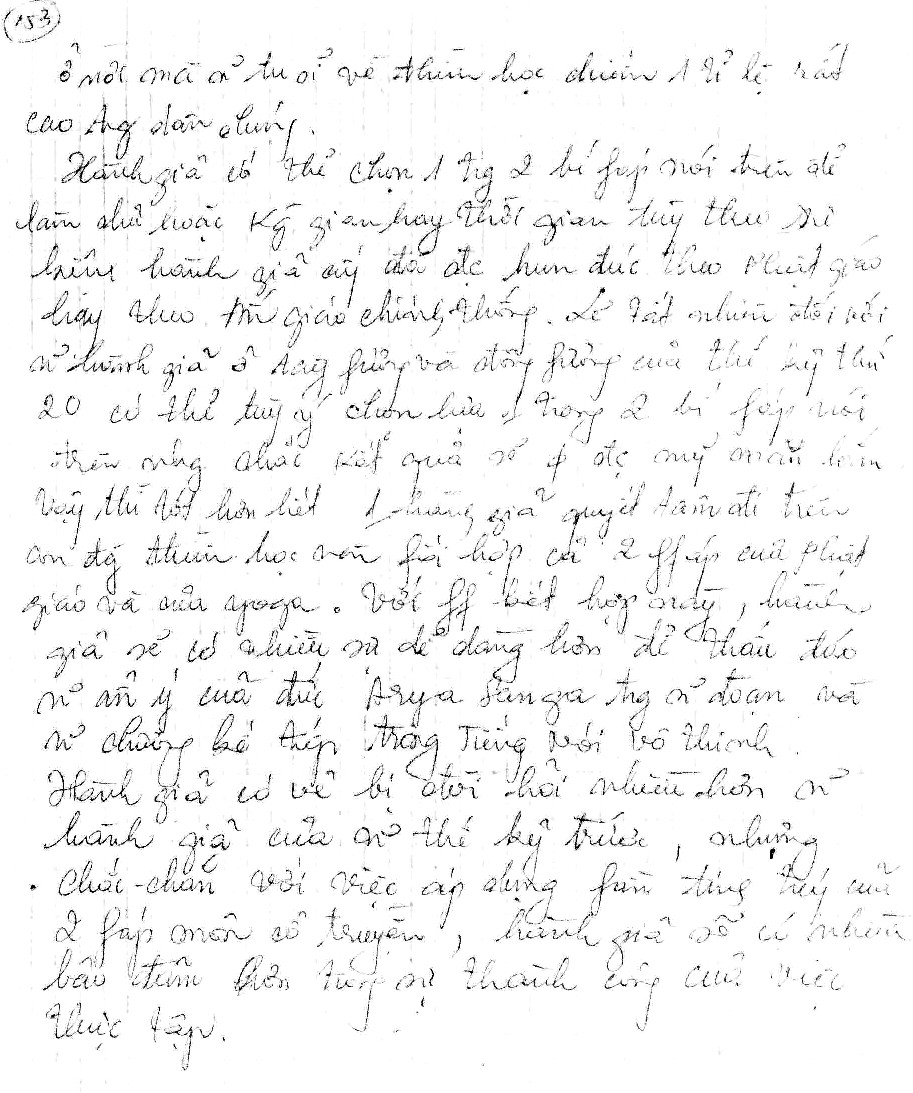 153
ở nơi mà n~ tu sĩ về thiền học chiếm 1 tỉ lệ rất
cao trg dân chúng.
Hành giả có thể chọn 1 trg 2 bí fáp nói trên để
làm chủ hoặc kg gian hay thời gian tùy theo sự
hành giả ấy đã đc hun đúc theo Phật giáo
hay theo Ấn giáo chính thống. Lẽ tất nhiên đối với
n~ hành giả ở tây fương và đông fương của thế kỷ thứ
20 có thể tuỳ ý chọn lựa 1 trong 2 bí fáp nói
trên nhg chắc kết quả sẽ ko đc mỹ mãn lắm
Vậy, thì tốt hơn hết 1 hành giả quyết tâm đi trên
con đg thiền học nên fối hợp cả 2 ffáp của Phật
giáo và của yoga. Với ff kết hợp này, hành
giả sẽ có nhiều sự dễ dàng hơn để thấu đáo
n~ ẩn ý của đức Arya Sanga trg n~ đoạn và
n~ chương kế tiếp trong Tiếng nói vô thinh.
Hành giả có vẻ bị đòi hỏi nhiều hơn n~
hành giả của n~ thế kỷ trước, nhưng
chắc-chắn với việc áp dụng fần tinh túy của
2 fáp môn cổ truyền, hành giả sẽ có nhiều
bảo đảm hơn trong sự thành công của việc
thực tập.